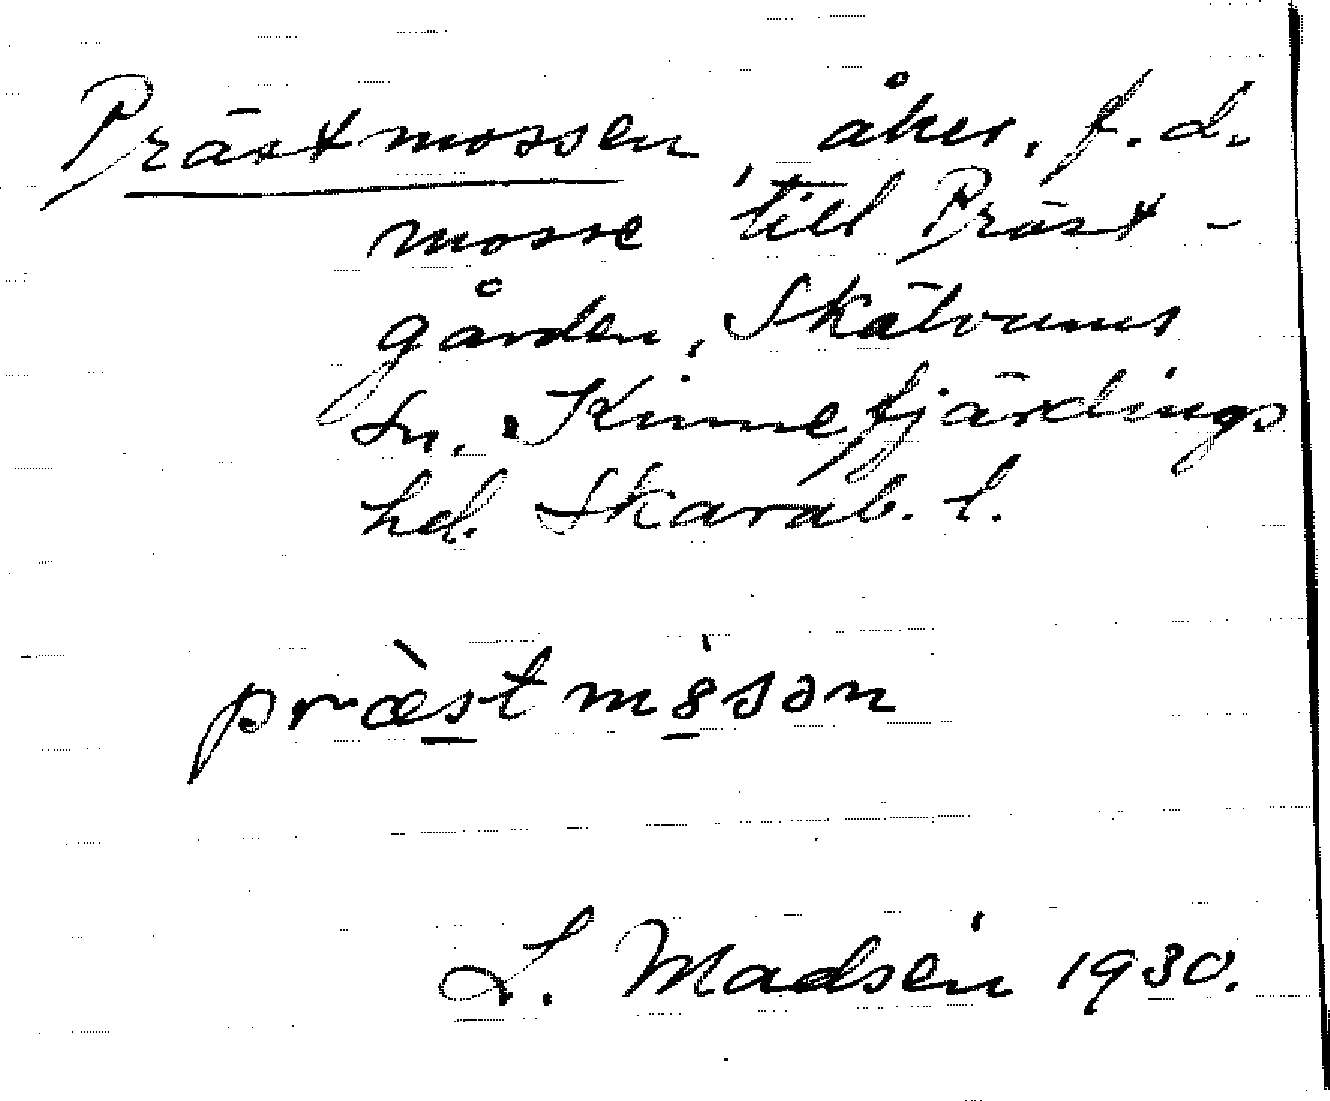 Prästmossen, åker, f.d.
mosse till Präst-
gården, Skälvums
sn. Kinnefjärdings
hd. Skarab. l.
præ̀stmȯsən
L. Madsén 1930.